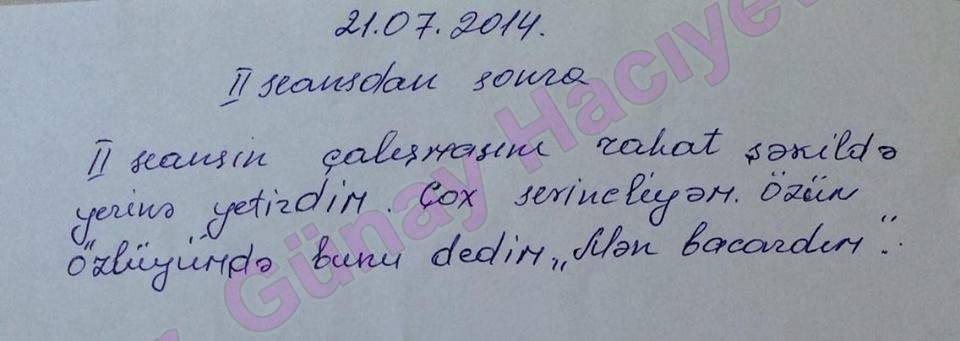 21.07.2014.
II seansdan sonra
II seansın çalışmasını rahat şəkildə
yerinə yetirdim. Çox sevincliyəm. Özün
özlüyümdə bunu dedim „Mən bacardım".
Günay Hacıyev